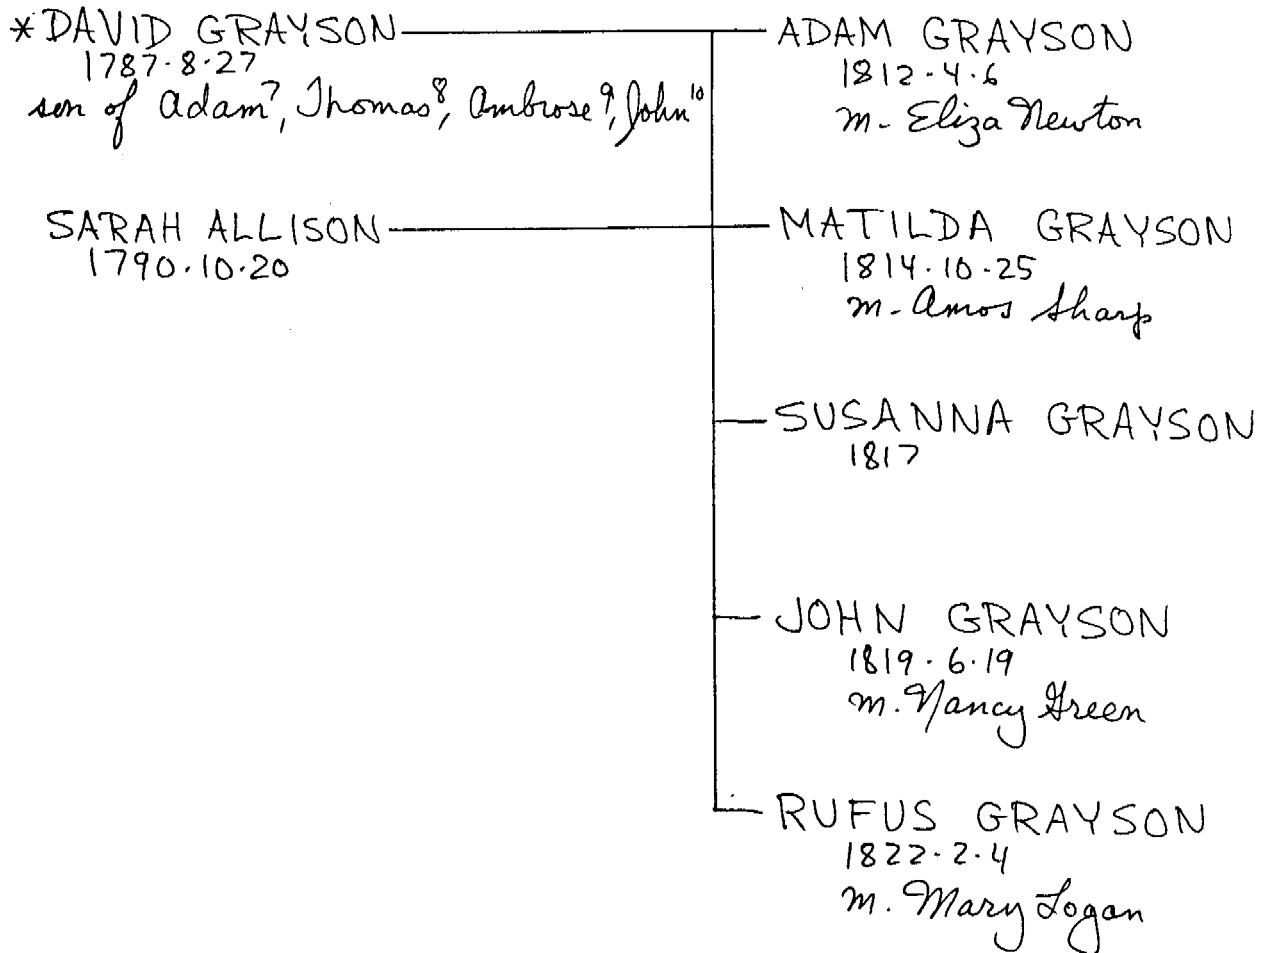 *DAVID GRAYSON
1787·8·27
son of Adam⁷, Thomas⁸, Ambrose⁹, John¹⁰
SARAH ALLISON
1790·10·20
ADAM GRAYSON
1812·4·6
m- Eliza Newton
MATILDA GRAYSON
1814·10·25
m- Amos Sharp
SUSANNA GRAYSON
1817
JOHN GRAYSON
1819·6·19
m. Nancy Green
RUFUS GRAYSON
1822·2·4
m. Mary Logan